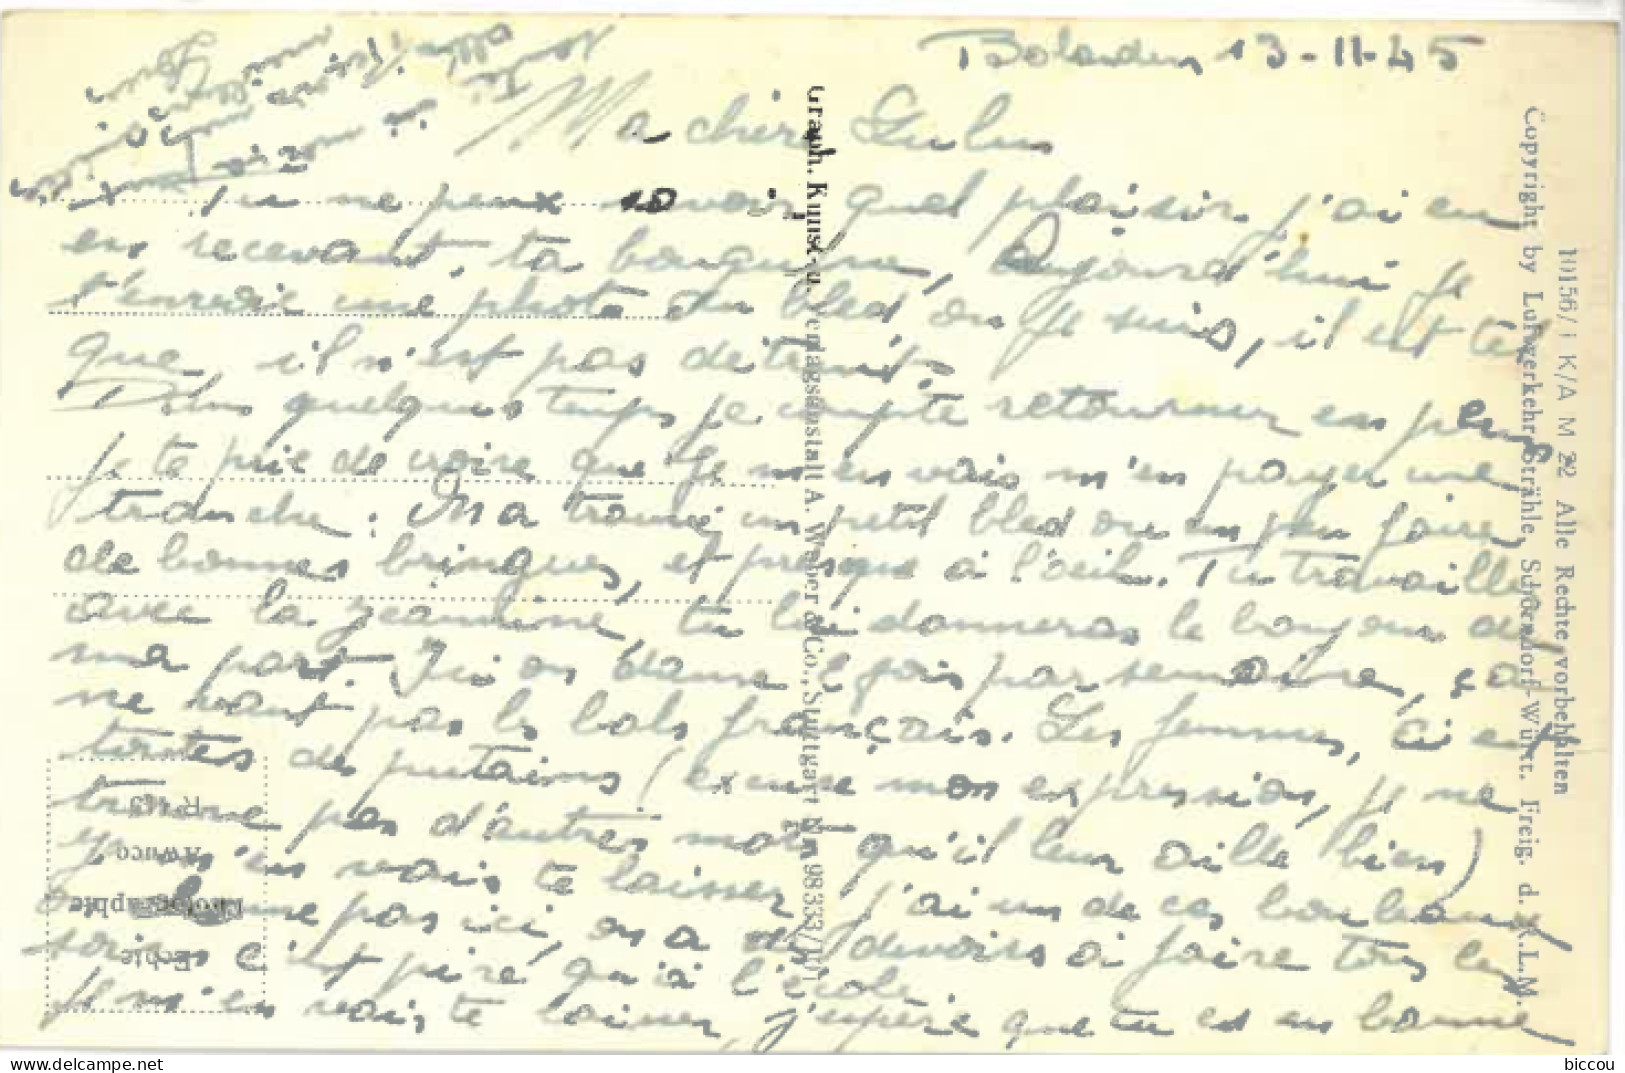 Bolanden 13-11-45
Ma chère Lulu
Tu ne peux savoir quel plaisir j'ai eu
en recevant ta bouquine, Aujourd'hui je
t'envoie une photo du bled ou je suis, il est tel
que, il n'est pas detruit.
Dans quelques temps je compte retourner en perm
je te prie de croire que je m'en vais m'en payer une
tranche. On a trouvé un petit bled ou un peu faire
de bonnes bringues, et presque à l'oeil. Tu travaille
avec la Jeannine, tu lui donneras le bonjour de
ma part. Ici on danse 2 fois par semaine, ça
ne vaut pas les bals français. Les femmes, ci est
toutes des putains (excuse mon expression, je ne
trouve pas d'autres mots qu'il leur aille bien)
Je m'en vais te laisser, j'ai un de ces boulleaux
chome pas ici, on a des devoirs à faire tous les
soirs c'est pire qu'à l'école
Je m'en vais te laisser, j'espère que tu es en bonne
Graph. Kunst- u. Verlagsanstalt A. Weber & Co., Stuttgart
98333/101
10156/1 K/A M 22 Alle Rechte vorbehalten
Copyright by Luftverkehr Strähle, Schorndorf-Württ. Freig. d. R.L.M.
R 415
Awuco
Photographie
Echte
biccou